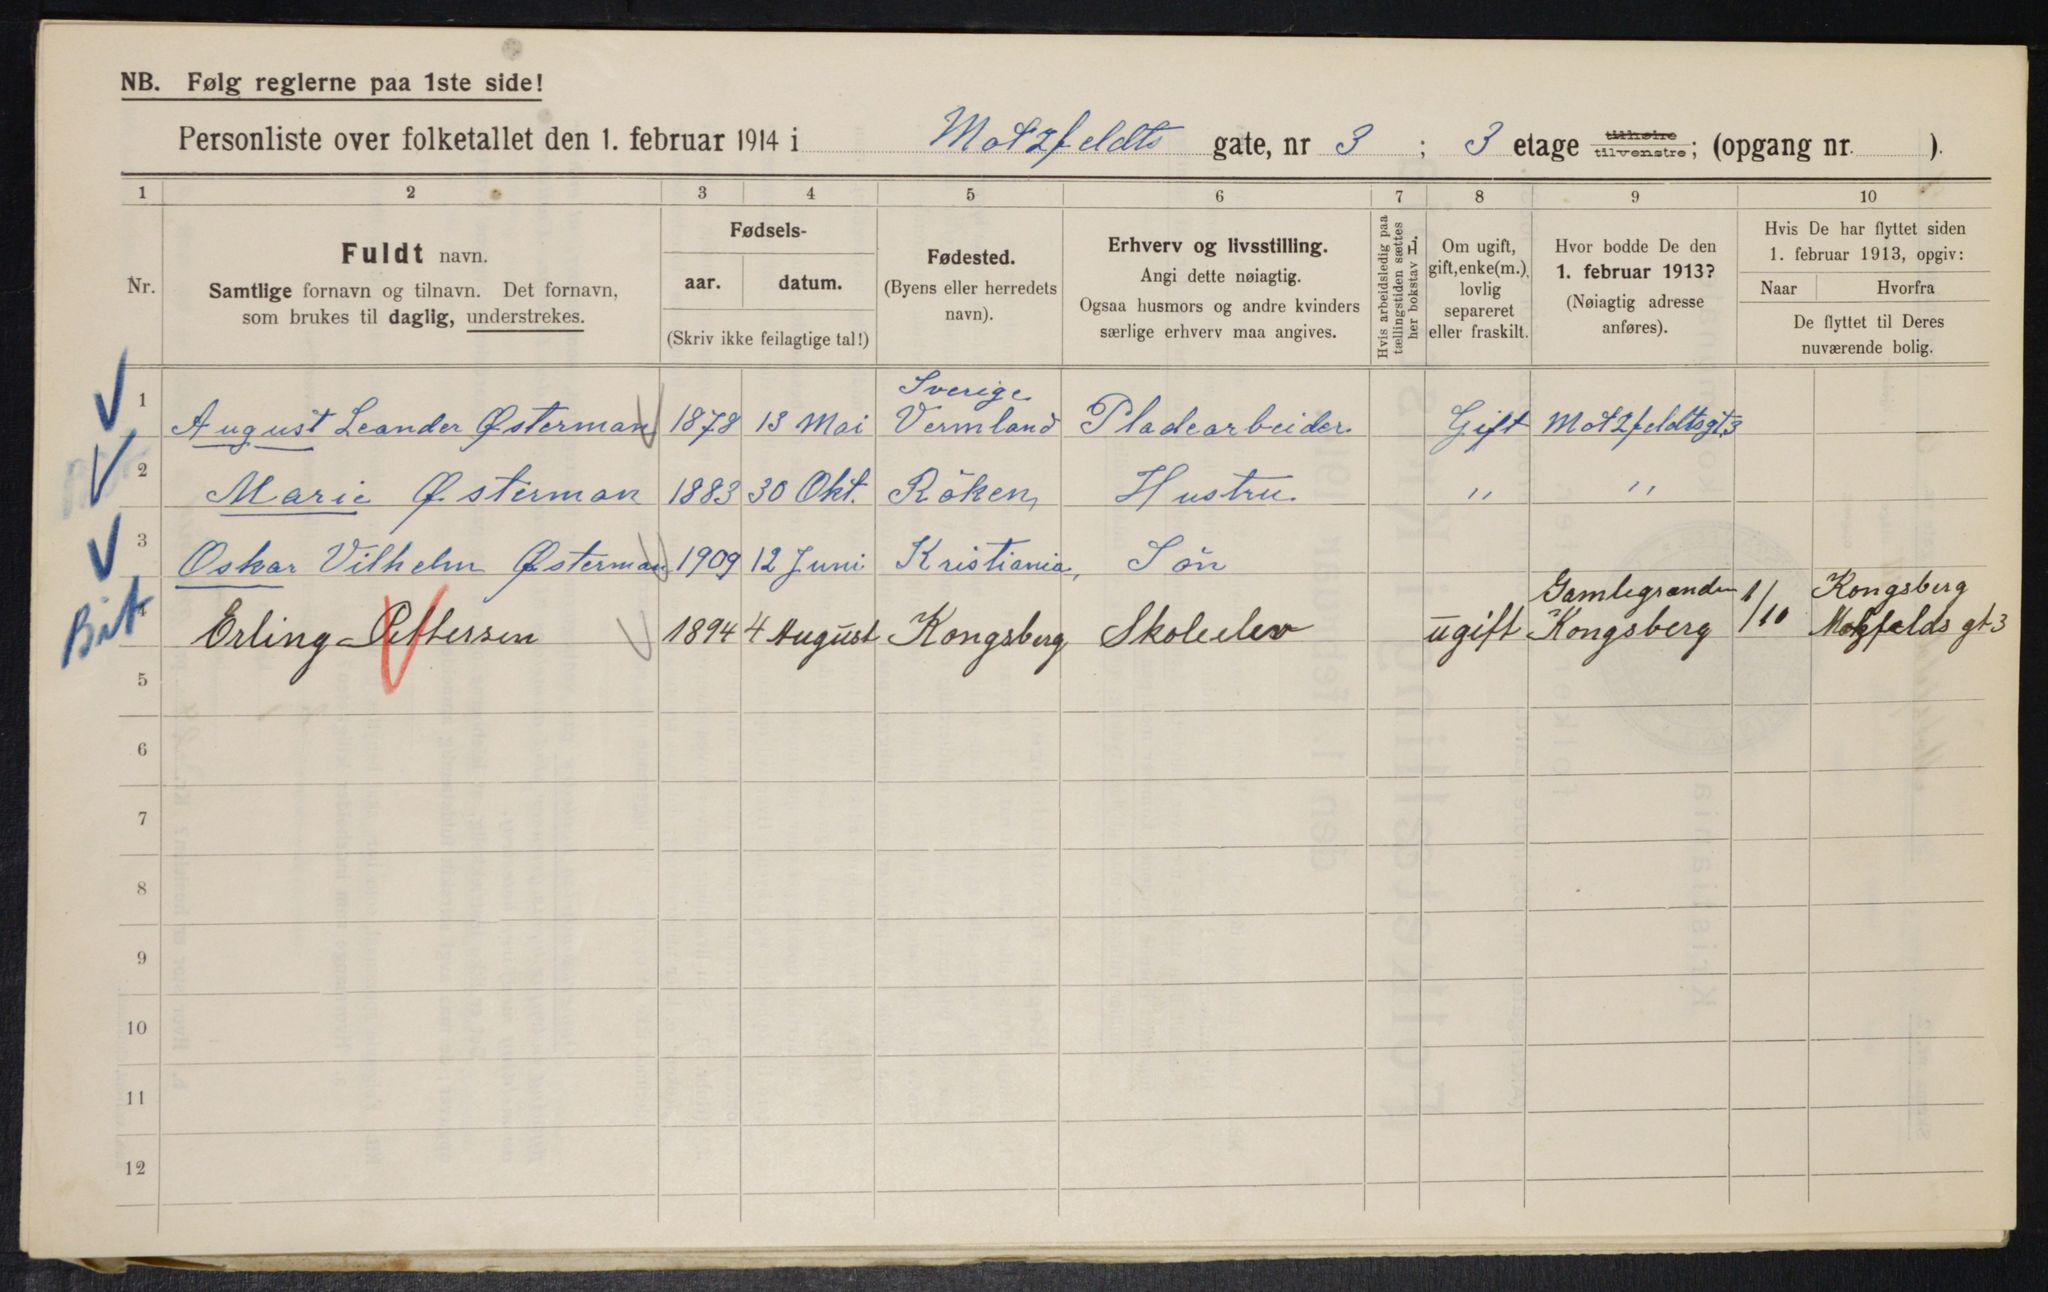 NB. Følg reglerne paa 1ste side!
Personliste over folketallet den 1. februar 1914 i Motzfeldts gate, nr 3 ; 3 etage tilhøire tilvenstre; (opgang nr. ).
1 2 3 4 5 6 7 8 9 10
Nr.
Fuldt navn.
Samtlige fornavn og tilnavn. Det fornavn,
som brukes til daglig, understrekes.
Fødsels-
aar. datum.
(Skriv ikke feilagtige tal!)
Fødested.
(Byens eller herredets
navn).
Erhverv og livsstilling.
Angi dette nøiagtig.
Ogsaa husmors og andre kvinders
særlige erhverv maa angives.
Hvis arbeidsledig paa
tællingstiden sættes
her bokstav L.
Om ugift,
gift, enke(m.),
lovlig
separeret
eller fraskilt.
Hvor bodde De den
1. februar 1913?
(Nøiagtig adresse
anføres).
Hvis De har flyttet siden
1. februar 1913, opgiv:
Naar Hvorfra
De flyttet til Deres
nuværende bolig.
1 August Leander Østerman 1878 13 Mai Sverige Vermland Pladearbeider Gift Motzfeldtsgt. 3
2 Marie Østerman 1883 30 Okt. Röken, Hustru " "
3 Oskar Vilhelm Østerman 1909 12 Juni Kristiania, Sön
Bit
4 Erling Pettersen 1894 4 August Kongsberg Skoleelev ugift Gamlegrænden Kongsberg 1/10 Kongsberg Motzfelds gt 3
5
6
7
8
9
10
11
12